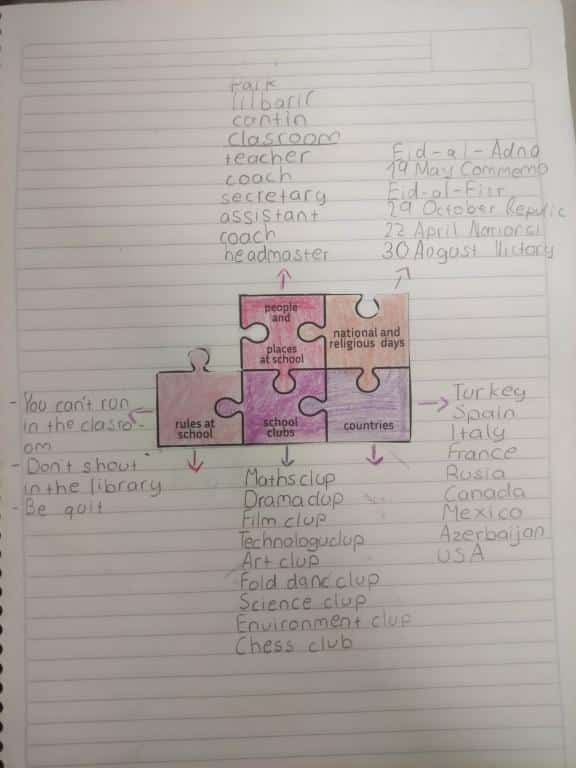 park
lilbaril
cantin
clasroom
teacher
coach
secretary
assistant
coach
headmaster
Eid-al-Adna
19 May Commemo
Eid-al-Fitr
29 October Repulic
22 April National
30 August Victory
people
and
places
at school
national and
religious days
rules at
school
school
clubs
countries
- You can't run
in the clasro-
om
- Don't shout
in the library
- Be quit
Maths clup
Drama clup
Film clup
Technologuclup
Art clup
Fold danc clup
Science clup
Environment clup
Chess club
Turkey
Spain
Italy
France
Rusia
Canada
Mexico
Azerbaijan
USA